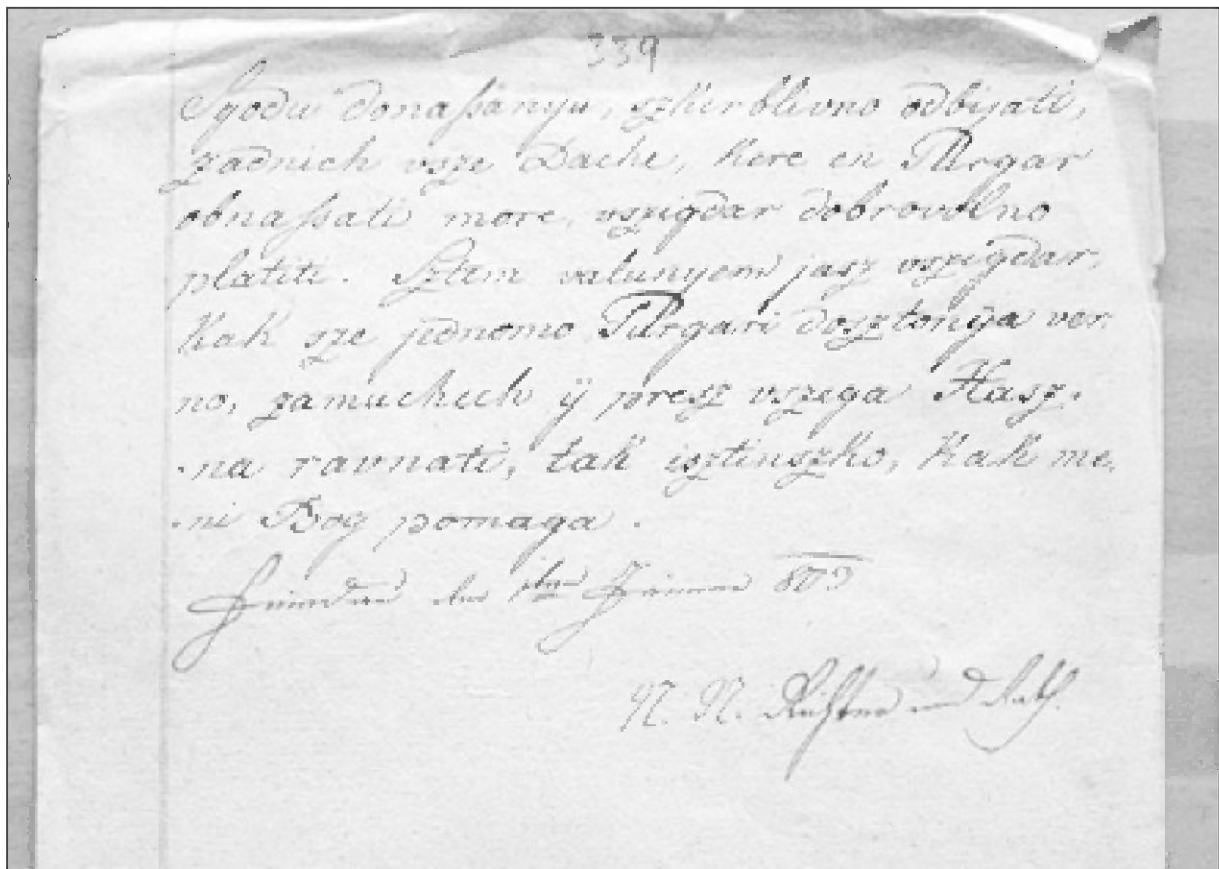 339
donaßanyu, szkerblivno odbijati,
zadnich vsze Dache, kere en Purgar
obnaßati more, vszigdar dobrovolno
platiti. Sztem valunyom jasz vszigdar,
kak sze jednomo Purgari dosztonja ver
no, zamuchech ÿ presz vszega Hasz-
-na ravnati, tak isztinszko, kak me,
-ni Bog pomaga.
den Jänner 803
N. N. Richter und Rath.